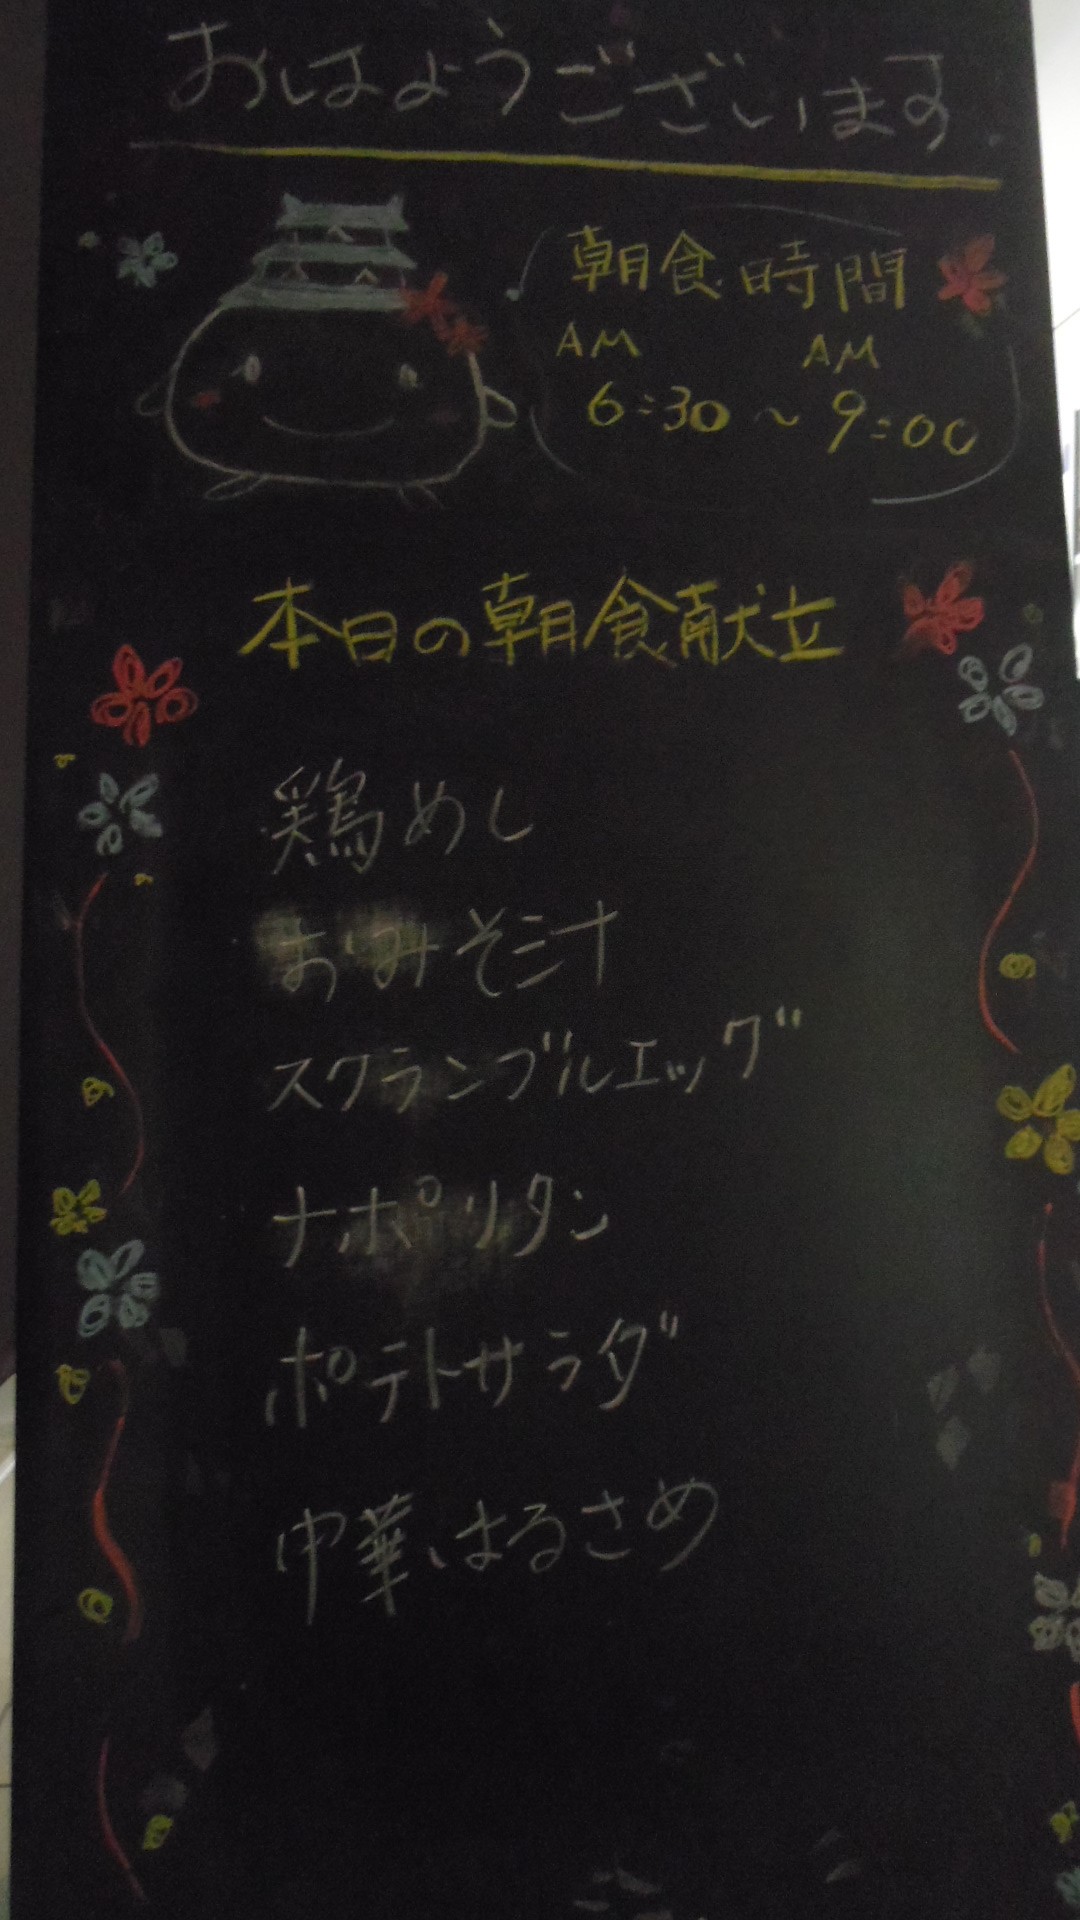 おはようございます
朝食時間
AM AM
6:30~9:00
本日の朝食献立
鶏めし
おみそ汁
スクランブルエッグ
ナポリタン
ポテトサラダ
中華はるさめ